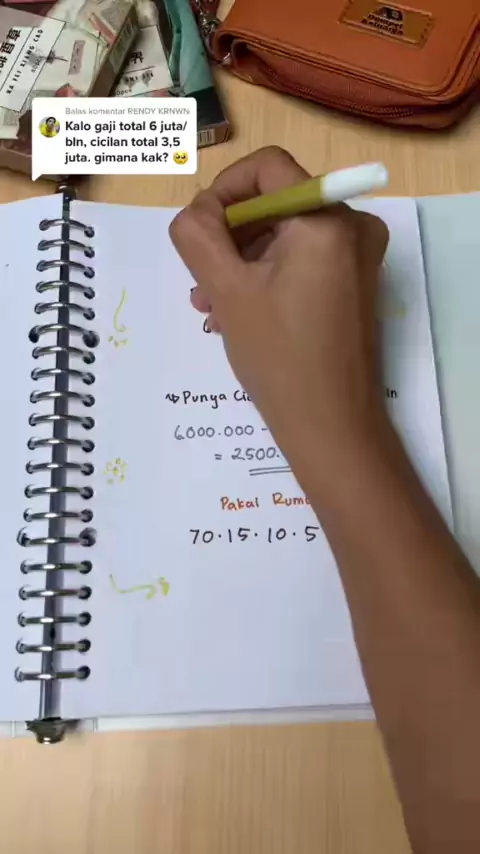 Balas komentar RENDY KRNWN
Kalo gaji total 6 juta/
bln, cicilan total 3,5
juta. gimana kak? 🥺
Dompet
Keluarga
↳ Punya
6000.000 -
= 2500.
Pakai
70 · 15 · 10 · 5